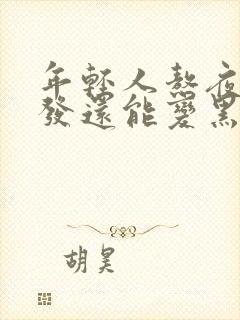 年輕人熬夜
發還能變黑
胡昊